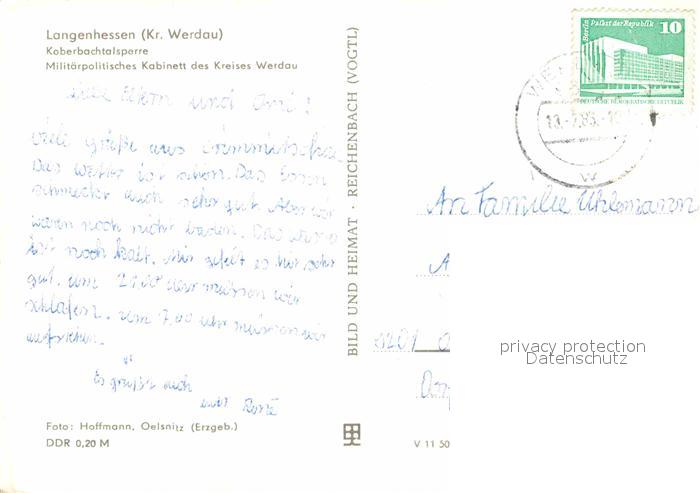 Langenhessen (Kr. Werdau)
Koberbachtalsperre
Militärpolitisches Kabinett des Kreises Werdau
Liebe Eltern und Omi!
viele grüße aus
Das Wetter ist schön. Das Essen
schmeckt auch sehr gut. Aber wir
waren noch nicht baden. Das Wasser
ist noch kalt. Mir gefält es hir sehr
gut. um 21.00 Uhr müssen wir
schlafen. um 7.00 uhr müssen wir
aufstehen.
Es grüßt euch
euer René
Foto: Hoffmann, Oelsnitz (Erzgeb.)
DDR 0,20 M
BILD UND HEIMAT · REICHENBACH (VOGTL)
V 11 50
Berlin Palast der Republik
10
DEUTSCHE DEMOKRATISCHE REPUBLIK
w
An Familie Uhlemann
A
privacy protection
Datenschutz